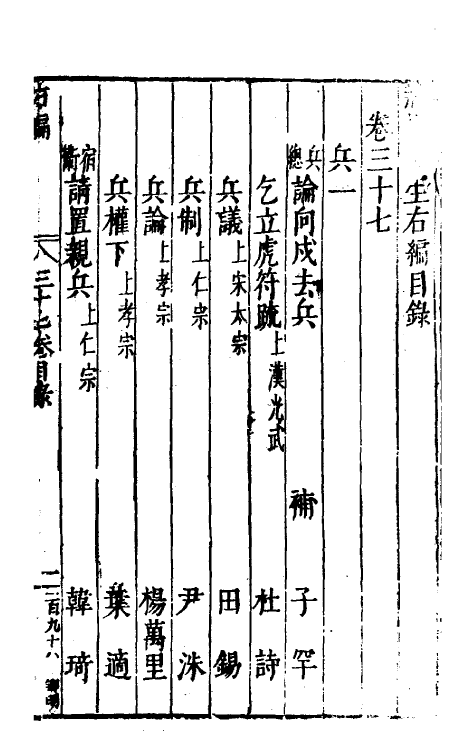 左右編目錄
卷三十七
兵一
兵總 論向戌去兵 補 子罕
乞立虎符疏 上漢光武 杜詩
兵議 上宋太宗 田錫
兵制 上仁宗 尹洙
兵論 上孝宗 楊萬里
兵權下 上孝宗 葉適
宿衛 請置親兵 上仁宗 韓琦
右編 三十七卷目錄 一百九十八